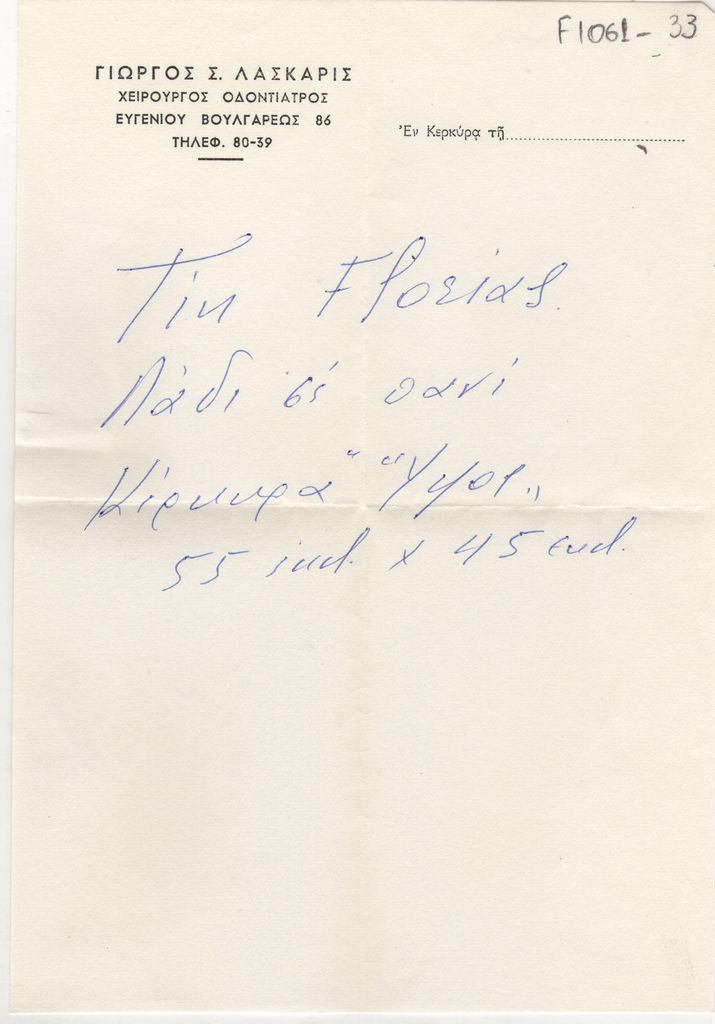 F1061-33
ΓΙΩΡΓΟΣ Σ. ΛΑΣΚΑΡΙΣ
ΧΕΙΡΟΥΡΓΟΣ ΟΔΟΝΤΙΑΤΡΟΣ
ΕΥΓΕΝΙΟΥ ΒΟΥΛΓΑΡΕΩΣ 86
ΤΗΛΕΦ. 80-39
Ἐν Κερκύρᾳ τῇ
Λάδι σέ πανί
Κέρκυρα"
55 ἑκατ. x 45 ἑκατ.